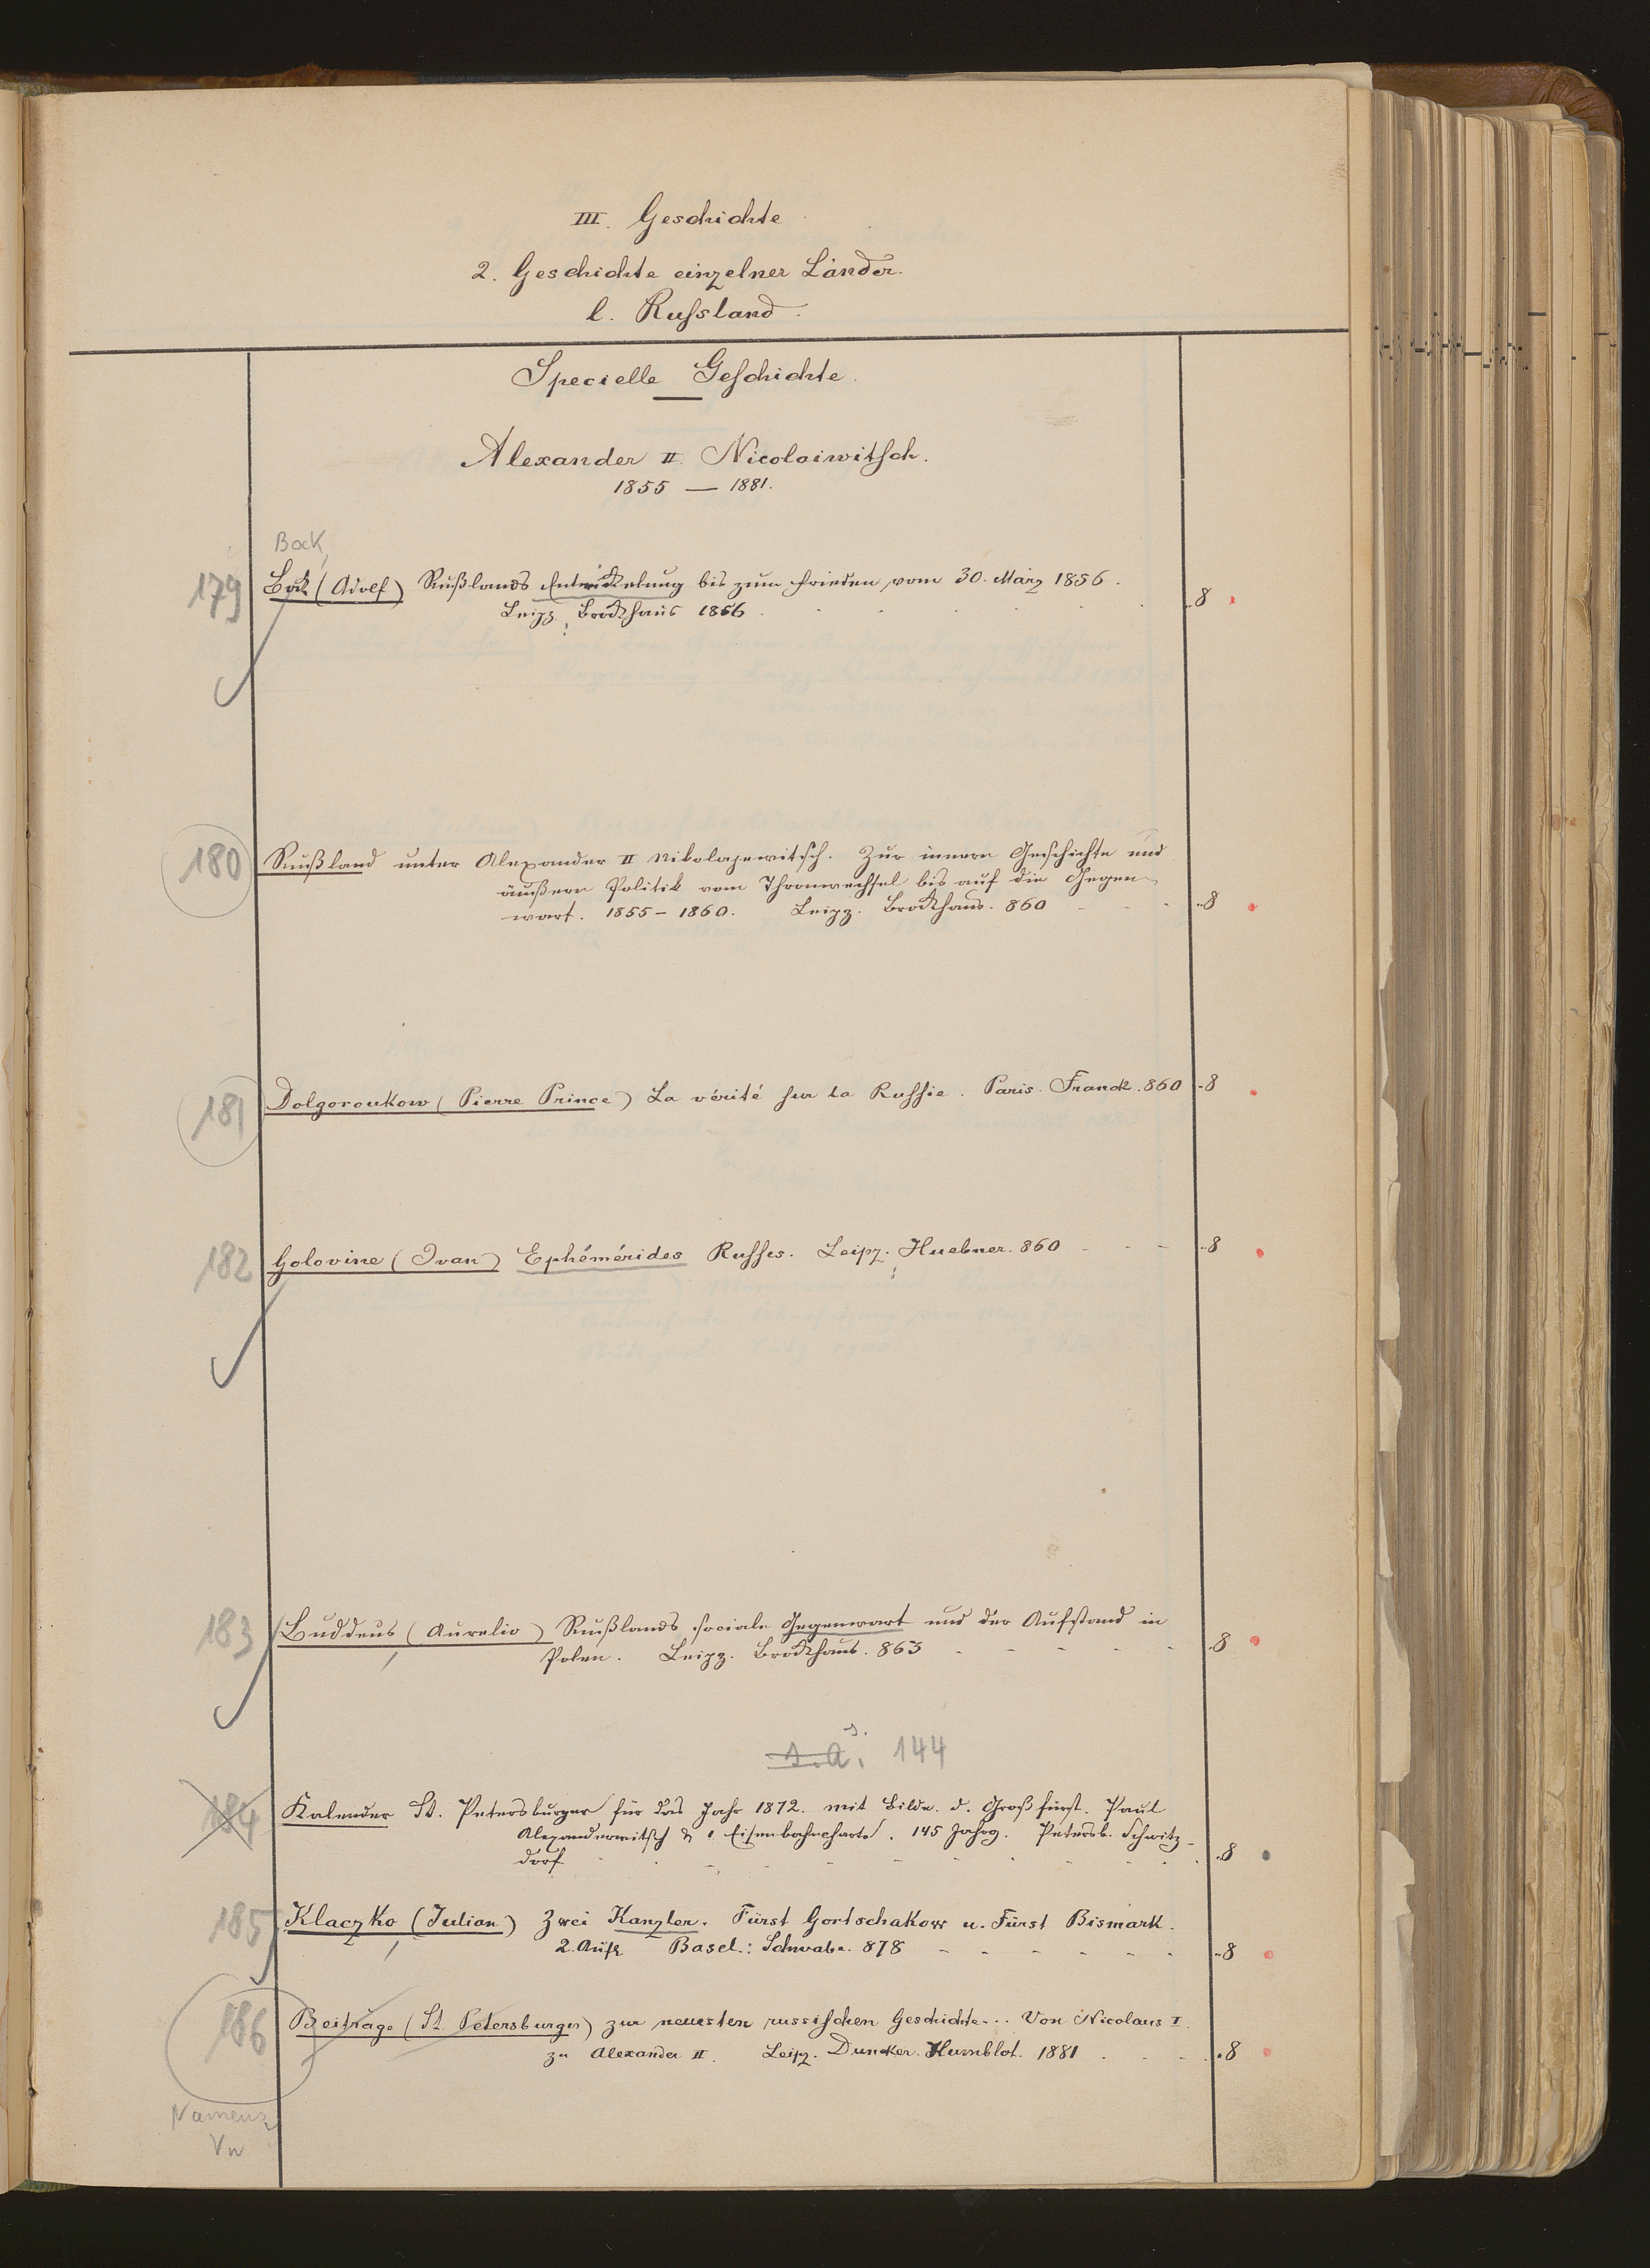 III. Geschichte
2. Geschichte einzelner Länder.
l. Russland.
Specielle Geschichte.
Alexander II. Nicolaiwitsch.
1855 — 1881.
Bock
179 Bock (Adolf) Rußlands Entwickelung bis zum Frieden vom 30. März 1856.
Leipz. Brockhaus 1856 . . . . . . 8
180 Rußland unter Alexander II Nikolajewitsch. Zur innern Geschichte und
äußern Politik vom Thronwechsel bis auf die Gegen-
wart. 1855-1860. Leipz. Brockhaus. 860 - - - 8
181 Dolgoroukow (Pierre Prince) La vérité sur la Russie. Paris. Franck. 860 - 8
182 Golovine (Ivan) Ephémérides Russes. Leipz. Huebner. 860 - - - 8
183 Buddeus (Aurelio) Rußlands sociale Gegenwart und der Aufstand in
Polen. Leipz. Brockhaus. 863 - - - - - 8
s.
s. a. 144
184 Kalender St. Petersburger für das Jahr 1872. mit Bildn. d. Großfürst. Paul
Alexanderwitsch & 1 Eisenbahncharte. 145 Jahrg. Petersb. Schmitz-
dorf - - - - - - 8
185 Klaczko (Julian) Zwei Kanzler. Fürst Gortschakow u. Fürst Bismark.
2. Aufl. Basel.: Schwabe. 878 - - - - - - 8
186 Beiträge (St. Petersburger) zur neuesten russischen Geschichte... Von Nicolaus I.
zu Alexander II. Leipz. Duncker. Humblot. 1881 . . - . 8
Namenz
Vn